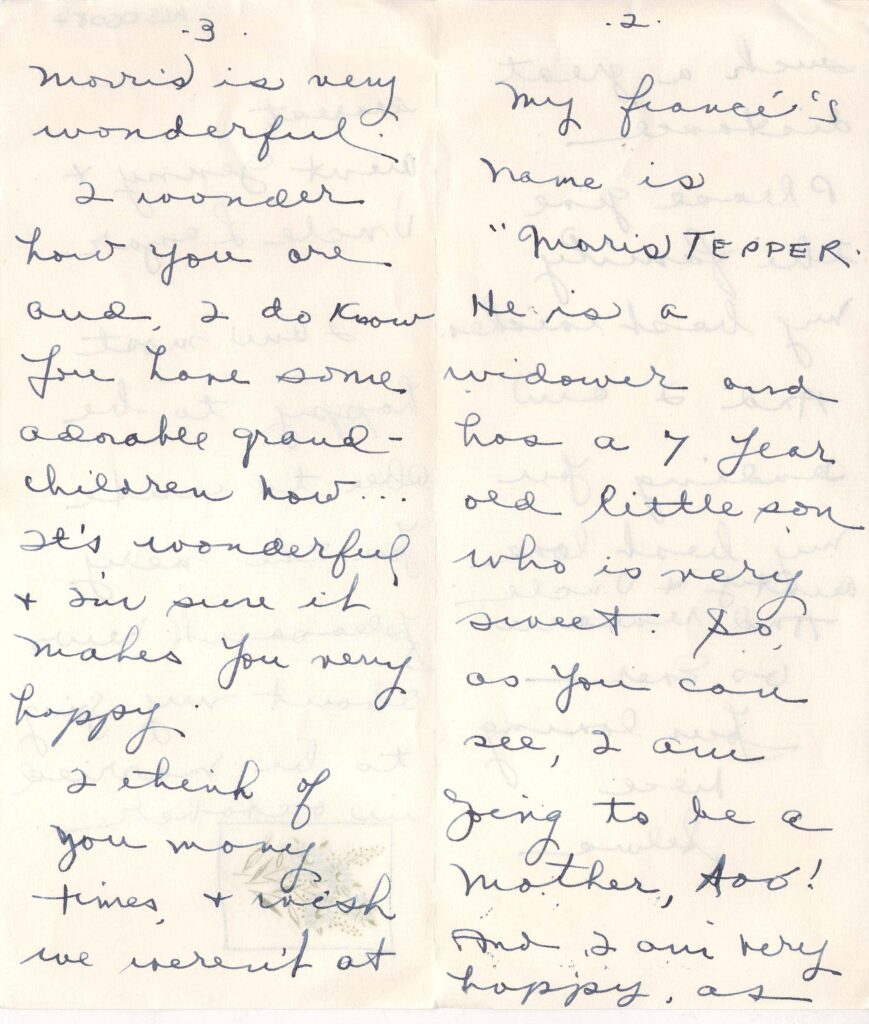 .2.
My fiancé's
name is
"Moris TEPPER.
He is a
widower and
has a 7 year
old little son
who is very
sweet. So,
as you can
see, I am
going to be a
mother, too!
And I am very
happy, as
.3.
Morris is very
wonderful.
I wonder
how you are
and, I do know
you have some
adorable grand-
children now...
It's wonderful
+ I'm sure it
makes you very
happy.
I think of
you many
times, + wish
we weren't at